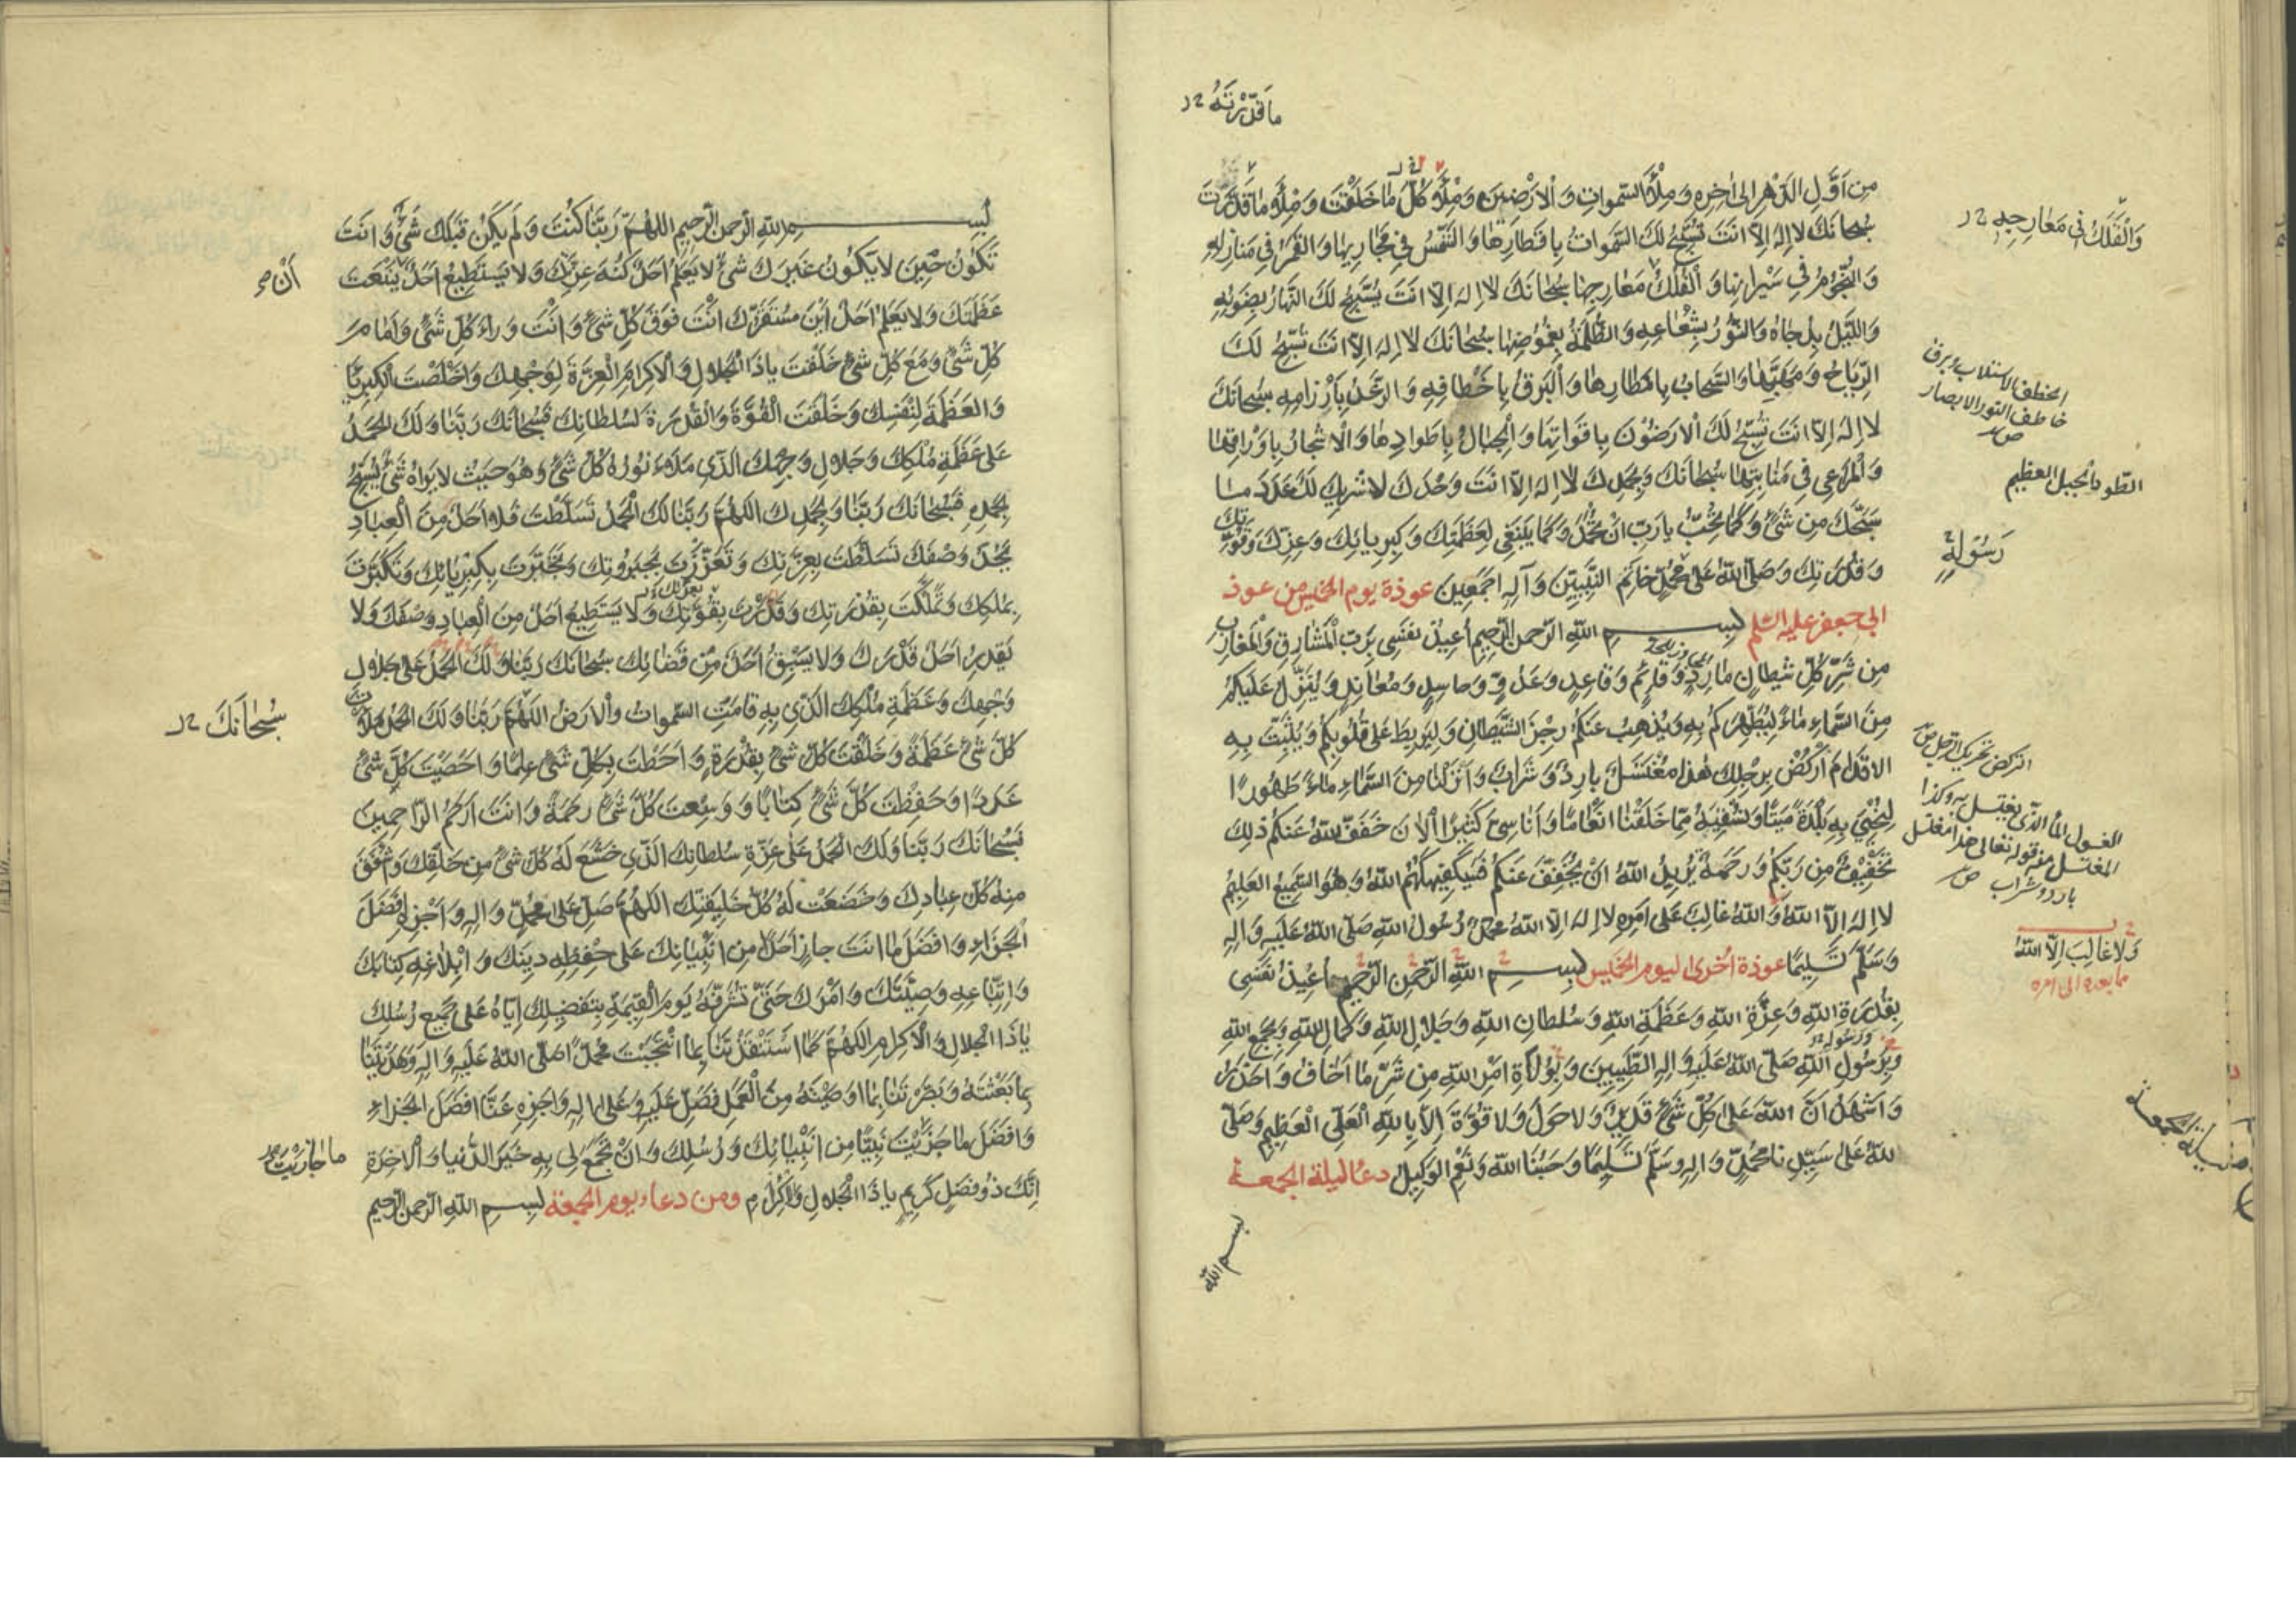 ما قَدَّرْتَهُ
مِن اَوَّلِ الدَّهْرِ الى اٰخِرِه وَمِلْأَ السَّمواتِ وَالاَرَضِينَ وَمِلْأَ كُلِّ ما خَلَقْتَ وَمِلْأَ ما قَدَّرْتَ
سُبْحانَكَ لا اِلهَ اِلّا اَنتَ تُسَبِّحُ لَكَ السَّمواتُ بِاَقطارِها وَالشَّمْسُ فِي مَجارِيها وَالقَمَرُ في مَنازِلِهِ
وَالنُّجُومُ في سَيَرانِها وَالْفَلَكُ مَعارِجِها سُبْحانَكَ لا اِلهَ اِلّا اَنتَ يُسَبِّحُ لَكَ النَّهارُ بِضَوْئِهِ
وَاللَّيْلُ بِدُجاهُ وَالنُّورُ بِشُعاعِهِ وَالظُّلْمَةُ بِغُمُوضِها سُبْحانَكَ لا اِلهَ اِلّا اَنتَ تُسَبِّحُ لَكَ
الرِّياحُ وَمَهَبِّها وَالسَّحابُ بِاَمْطارِها وَالْبَرقُ بِاَخْطافِهِ وَالرَّعْدُ بِاِرْزامِهِ سُبْحانَكَ
لا اِلهَ اِلّا اَنتَ تُسَبِّحُ لَكَ الاَرَضُوْنَ بِاَقواتِها وَالْجِبالُ بِاَطوادِها وَالاَشجارُ بِاَوْراقِها
وَالْمَراعِي فِي مَنابِتِها سُبْحانَكَ وَبِحَمْدِكَ لا اِلهَ اِلّا اَنتَ وَحْدَكَ لا شَرِيكَ لَكَ عَدَدَ ما
سَبَّحَكَ مِن شَيْءٍ وَكَما تُحِبُّ يا رَبِّ اَنْ تُحْمَدَ وَكَما يَنبَغِي لِعَظَمَتِكَ وَكِبرِيائِكَ وَعِزِّكَ وَقُوَّتِكَ
وَقُدْرَتِكَ وَصَلَّى اللهُ عَلى مُحَمَّدٍ خاتَمِ النَّبِيِّينَ وَآلِهِ اَجمَعِينَ عوذة يوم الخميس من عوذ
ابي جعفر عليه السّلم بسم اللهِ الرّحمنِ الرّحِيمِ اُعِيذُ نَفسِي بِرَبِّ الْمَشارِقِ وَالْمَغارِبِ
مِن شَرِّ كُلِّ شَيْطانٍ مارِدٍ وَقائِمٍ وَقاعِدٍ وَعَدُوٍّ وَحاسِدٍ وَمُعانِدٍ وَيُنَزِّلُ عَلَيكُمْ
مِنَ السَّماءِ ماءً لِيُطَهِّرَكُمْ بِهِ وَيُذْهِبَ عَنكُمْ رِجْزَ الشَّيْطانِ وَلِيَرْبِطَ عَلى قُلُوبِكُمْ وَيُثَبِّتَ بِهِ
الاَقْدامَ اُرْكُضْ بِرِجْلِكَ هذا مُغْتَسَلٌ بارِدٌ وَشَرابٌ وَاَنْزَلْنا مِنَ السَّماءِ ماءً طَهُورًا
لِنُحْيِيَ بِهِ بَلْدَةً مَيْتًا وَنُسْقِيَهُ مِمّا خَلَقْنا اَنْعامًا وَاَناسِيَّ كَثِيرًا اَلآنَ خَفَّفَ اللهُ عَنكُمْ ذلِكَ
تَخْفِيفٌ مِن رَبِّكُمْ وَرَحمَةٌ يُرِيدُ اللهُ اَنْ يُخَفِّفَ عَنكُمْ فَسَيَكْفِيكَهُمُ اللهُ وَهُوَ السَّمِيعُ العَلِيمُ
لا اِلهَ اِلّا اللهُ وَاللهُ غالِبٌ عَلى اَمْرِهِ لا اِلهَ اِلّا اللهُ مُحَمَّدٌ رَسُولُ اللهِ صَلَّى اللهُ عَلَيهِ وَالِهِ
وَسَلَّمَ تَسلِيمًا عوذة اُخرى ليوم الخميس بسم اللهِ الرَّحمنِ الرَّحِيمِ اُعِيذُ نَفسِي
بِقُدْرَةِ اللهِ وَعِزَّةِ اللهِ وَعَظَمَةِ اللهِ وَسُلطانِ اللهِ وَجَلالِ اللهِ وَكَمالِ اللهِ وَبِجَمْعِ اللهِ
وَبِرَسُولِ اللهِ صَلَّى اللهُ عَلَيهِ وَالِهِ الطَّيِّبِينَ وَبِوُلاةِ اَمْرِ اللهِ مِن شَرِّ ما اَخافُ وَاَحذَرُ
وَاَشهَدُ اَنَّ اللهَ عَلى كُلِّ شَيْءٍ قَدِيرٌ وَلا حَولَ وَلا قُوَّةَ اِلّا بِاللهِ العَلِيِّ الْعَظِيمِ وَصَلَّى
اللهُ عَلى سَيِّدِنا مُحَمَّدٍ وَالِهِ وَسَلَّمَ تَسلِيمًا وَحَسْبُنَا اللهُ وَنِعْمَ الوَكِيلُ دعا ليلة الجمعة
بسم الله
وَالْفَلَكُ في مَعارِجِهِ
الخطف الاستلاب وبرق
خاطف النور الابصار
الطّود الجبل العظيم
رَسُولِهِ
الركض تحريك الرّجل
الغسول الماء الذي يغتسل به وكذا
المغتسل منه قوله تعالى هذا مغتسل
بارد وشراب
وَلا غالِبَ اِلّا اللهُ
ما بعده الى امره
بسم اللهِ الرّحمنِ الرّحيمِ اللهُمَّ رَبَّنا كُنْتَ وَلَم يَكُنْ قَبلَكَ شَيْءٌ وَاَنتَ
تَكُونُ حِينَ لا يَكُونُ غَيرَكَ شَيْءٌ لا يَعلَمُ اَحَدٌ كُنْهَ عِزَّتِكَ وَلا يَستَطِيعُ اَحَدٌ يَنْعَتَ
عَظَمَتَكَ وَلا يَعْلَمُ اَحَدٌ اَيْنَ مُستَقَرُّكَ اَنْتَ فَوقَ كُلِّ شَيْءٍ وَاَنْتَ وَراءَ كُلِّ شَيْءٍ وَاَمامَ
كُلِّ شَيْءٍ وَمَعَ كُلِّ شَيْءٍ خَلَقْتَ يا ذَا الْجَلالِ وَالاِكرامِ الْعِزَّةَ لِوَجْهِكَ وَاَخْلَصْتَ الْكِبرِياءَ
وَالعَظَمَةَ لِنَفْسِكَ وَخَلَقْتَ الْقُوَّةَ وَالْقُدْرَةَ لِسُلْطانِكَ فَسُبْحانَكَ رَبَّنا وَلَكَ الحَمدُ
عَلى عَظَمَةِ مُلْكِكَ وَجَلالِ وَجْهِكَ الَّذِي مَلأَ نُورُهُ كُلَّ شَيْءٍ وَهُوَ حَيْثُ لا يَراهُ شَيْءٌ يُسَبِّحُ
بِحَمْدِهِ فَسُبْحانَكَ رَبَّنا وَبِحَمْدِكَ اللهُمَّ رَبَّنا لَكَ الْحَمْدُ تَسَلَّطْتَ فَلا اَحَدٌ مِنَ الْعِبادِ
يَحُدُّ وَصْفَكَ تَسَلَّطْتَ بِعِزَّتِكَ وَتَعَزَّزْتَ بِجَبَرُوتِكَ وَتَجَبَّرْتَ بِكِبْرِيائِكَ وَتَكَبَّرتَ
بِمُلْكِكَ وَتَمَلَّكْتَ بِقُدْرَتِكَ وَقَدَرْتَ بِقُوَّتِكَ وَلا يَستَطِيعُ اَحَدٌ مِنَ الْعِبادِ وَصْفَكَ وَلا
يَقدِرُ اَحَدٌ قَدْرَكَ وَلا يَسْبِقُ اَحَدٌ مِنْ قَضائِكَ سُبْحانَكَ رَبَّنا وَلَكَ الحَمْدُ عَلى جَلالِ
وَجْهِكَ وَعَظَمَةِ مُلْكِكَ الَّذِي بِهِ قامَتِ السَّمواتُ وَالاَرضُ اللهُمَّ رَبَّنا وَلَكَ الحَمْدُ مَلأْتَ
كُلَّ شَيْءٍ عَظَمَةً وَخَلَقْتَ كُلَّ شَيْءٍ بِقُدْرَةٍ وَاَحَطْتَ بِكُلِّ شَيْءٍ عِلْمًا وَاَحْصَيْتَ كُلَّ شَيْءٍ
عَدَدًا وَحَفِظْتَ كُلَّ شَيْءٍ كِتابًا وَوَسِعْتَ كُلَّ شَيْءٍ رَحمَةً وَاَنتَ اَرحَمُ الرّاحِمِينَ
فَسُبْحانَكَ رَبَّنا وَلَكَ الْحَمدُ عَلى عِزَّةِ سُلطانِكَ الَّذِي خَشَعَ لَهُ كُلُّ شَيْءٍ مِن خَلْقِكَ وَاَشْفَقَ
مِنهُ كُلُّ عِبادِكَ وَخَضَعَتْ لَهُ كُلُّ خَلِيقَتِكَ اللهُمَّ صَلِّ عَلى مُحَمَّدٍ وَالِهِ وَاَجْزِهِ اَفْضَلَ
الْجَزاءِ وَاَفضَلَ ما اَنتَ جازٍ اَحَدًا مِن اَنْبِيائِكَ عَلى حِفْظِهِ دِينَكَ وَاِبْلاغِهِ كِتابَكَ
وَاتِّباعِهِ وَصِيَّتَكَ وَاَمْرَكَ حَتّى تُشَرِّفَهُ يَومَ الْقِيمَةِ بِتَفضِيلِكَ اِيّاهُ عَلى جَميعِ رُسُلِكَ
يا ذَا الجَلالِ وَالاِكرامِ اللهُمَّ كَمَا اسْتَنْقَذْتَنا بِمَا انْتَجَبْتَ مُحَمَّدًا صَلَّى اللهُ عَلَيهِ وَالِهِ وَهَدَيْتَنا
بِما بَعَثْتَهُ وَبَصَّرْتَنا بِما اَوصَيْتَهُ مِنَ الْعَمَلِ فَصَلِّ عَلَيهِ وَعَلى الِهِ وَاجزِهِ عَنّا اَفضَلَ الجَزاءِ
وَاَفضَلَ ما جَزَيْتَ نَبِيًّا مِن اَنْبِيائِكَ وَرُسُلِكَ وَاَنْ تَجمَعَ لِي بِهِ خَيرَ الدُّنيا وَالاخِرَةِ
اِنَّكَ ذُو فَضلٍ كَرِيمٍ يا ذَا الْجَلالِ وَالاِكرامِ ومن دعاء يوم الجمعة بسم اللهِ الرّحمنِ الرّحيمِ
اَنْ
سُبْحانَكَ
ما جازَيْتَ